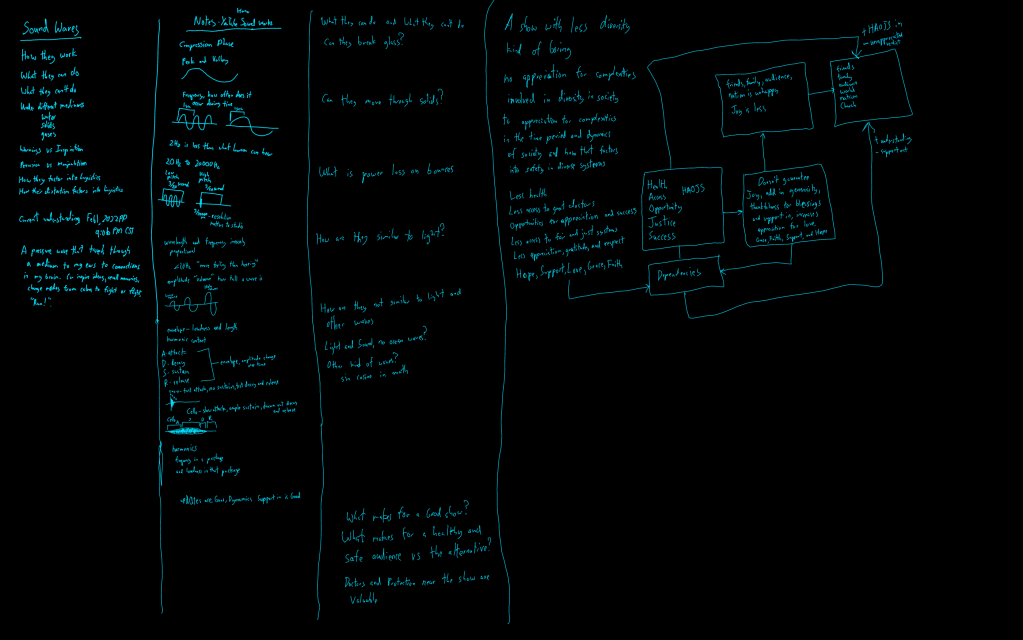 Sound Waves
How they work
What they can do
What they can't do
Under different mediums
water
solids
gases
Warnings vs Inspiration
Persuasion vs Manipulation
How they factor into logistics
How their distortion factors into logistics
Current understanding Feb 1, 2022 PP
9:06 PM CST
A pressure wave that travels through
a medium to my ears to connections
in my brain. Can inspire ideas, recall memories,
change modes from calm to fight or flight.
"Run!"
Home
Notes - YouTube Sound Works
Compression Phase
Peak and Valley
Frequency, how often does it
occur during time
2Hz is less than what human can hear
20Hz to 20000Hz
Low pitch
High pitch
wavelength and frequency inversely
proportional
<20Hz "more feeling than hearing"
amplitude "volume" how tall a wave is
envelope - loudness and length
harmonic content
A attack
D - decay
S - sustain
R - release
envelope, amplitude change
over time
fast attack, no sustain, fast decay and release
Cello - slow attack, ample sustain, drawn out decay
and release
Cello
harmonics
frequency in a package
and loudness in that package
What they can do and What they can't do
Can they break glass?
Can they move through solids?
What is power loss on bounces
How are they similar to light?
How are they not similar to Light and
other waves
Light and Sound, no ocean waves?
Other kind of waves?
What makes for a Good show?
What makes for a healthy and
safe audience vs the alternative?
Doctors and Protection near the show are
valuable
A show with less diversity
kind of boring
no appreciation for complexities
involved in diversity in society
to appreciation for complexities
in the time period and dynamics
of society and how that factors
into safety in diverse systems
Less health
Less access to great doctors
Opportunities for appreciation and success
Less access to fair and just systems
Less appreciation, gratitude, and respect
Hope, Support, Love, Grace, Faith
Health
Access
Opportunity
Justice
Success
HAOJS
Dependencies
Doesn't guarantee
Joy, add in generosity,
thankfulness for blessings
and support in, increases
appreciation for love
Grace, Faith, Support, and Hope
friends, family, audience,
nation is unhappy
Joy is less
+ HAOJS in
friends
family
audience
world
nation
Church
+ understanding
- support